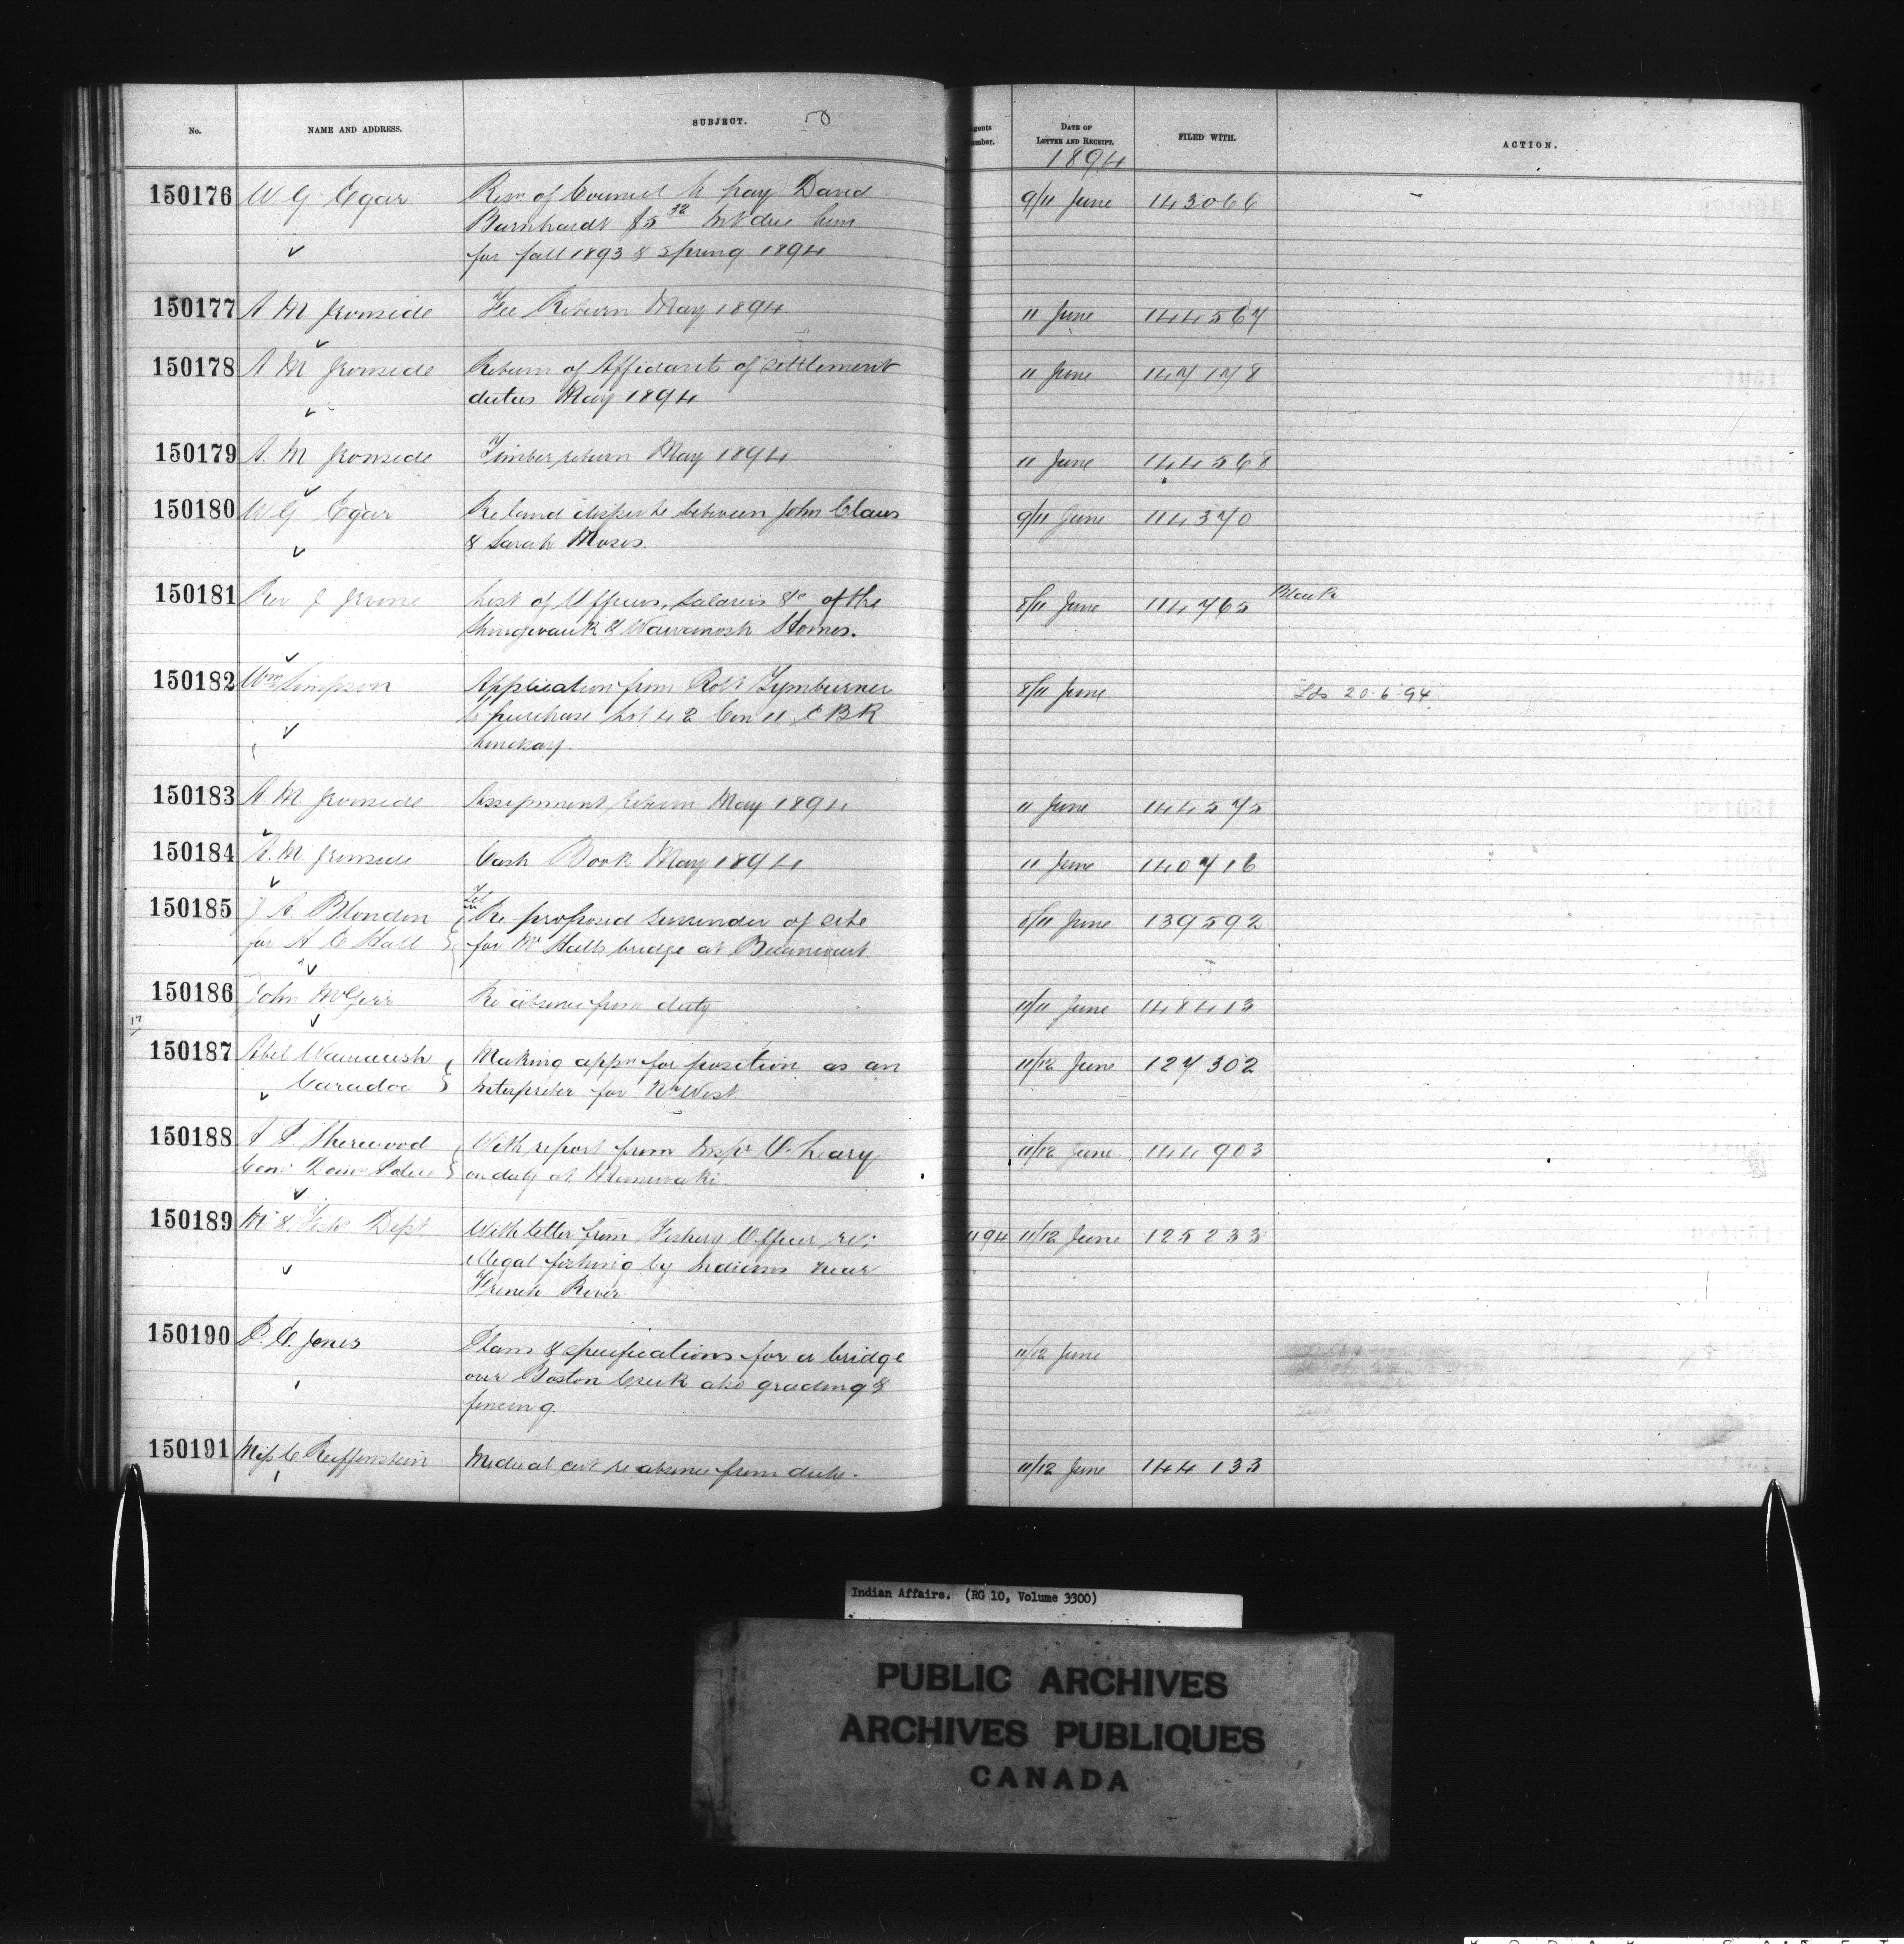 No.
NAME AND ADDRESS.
SUBJECT.
50
Agents
Number.
DATE OF
LETTER AND RECEIPT.
1894
FILED WITH.
ACTION.
150176 W G Egar Resn of Council to pay David 9/11 June 143066
Barnhardt $5 32 Int due him
for fall 1893 & Spring 1894
150177 A M Ironside Fee Return May 1894 11 June 144567
150178 A M Ironside Return of Affidavits of settlement 11 June 147178
duties May 1894
150179 A. M Ironside Timber return May 1894 11 June 144568
150180 W G Egar Re land dispute between John Claus 9/11 June 114370
& Sarah Moses.
150181 Rev J Irvine List of Officers, Salaries &c of the 8/11 June 114765 Blank
Shingwauk & Wawanosh Homes.
150182 Wm Simpson Application from Robt Tymburner 8/11 June Lds 20.6.94
to purchase Lot 42 Con 11 E B R
Lindsay.
150183 A M Ironside Assignment return May 1894 11 June 144575
150184 A. M. Ironside Cash Book May 1894 11 June 140716
150185 J A. Blondin Re proposed surrender of site 8/11 June 139592
for A C Hall for Mr Halls bridge at Becancourt.
150186 John McGirr Re absence from duty 11/11 June 148413
17
150187 Abel Wauaush Making appn for position as an 11/12 June 127302
Caradoc Interpreter for N. West.
150188 A P Sherwood With report from Insp. O'Leary 11/12 June 144903
Com Dom Police on duty at Maniwaki.
150189 M & Fish Dept. With letter from Fishery Officer re: 1194 11/12 June 125233
illegal fishing by Indians near
French River
150190 P. C. Jones Plans & specifications for a bridge 11/12 June
over Boston Creek also grading &
fencing.
150191 Miss C Reiffenstein Medical cert. re absence from duty. 11/12 June 144133
Indian Affairs. (RG 10, Volume 3300)
PUBLIC ARCHIVES
ARCHIVES PUBLIQUES
CANADA